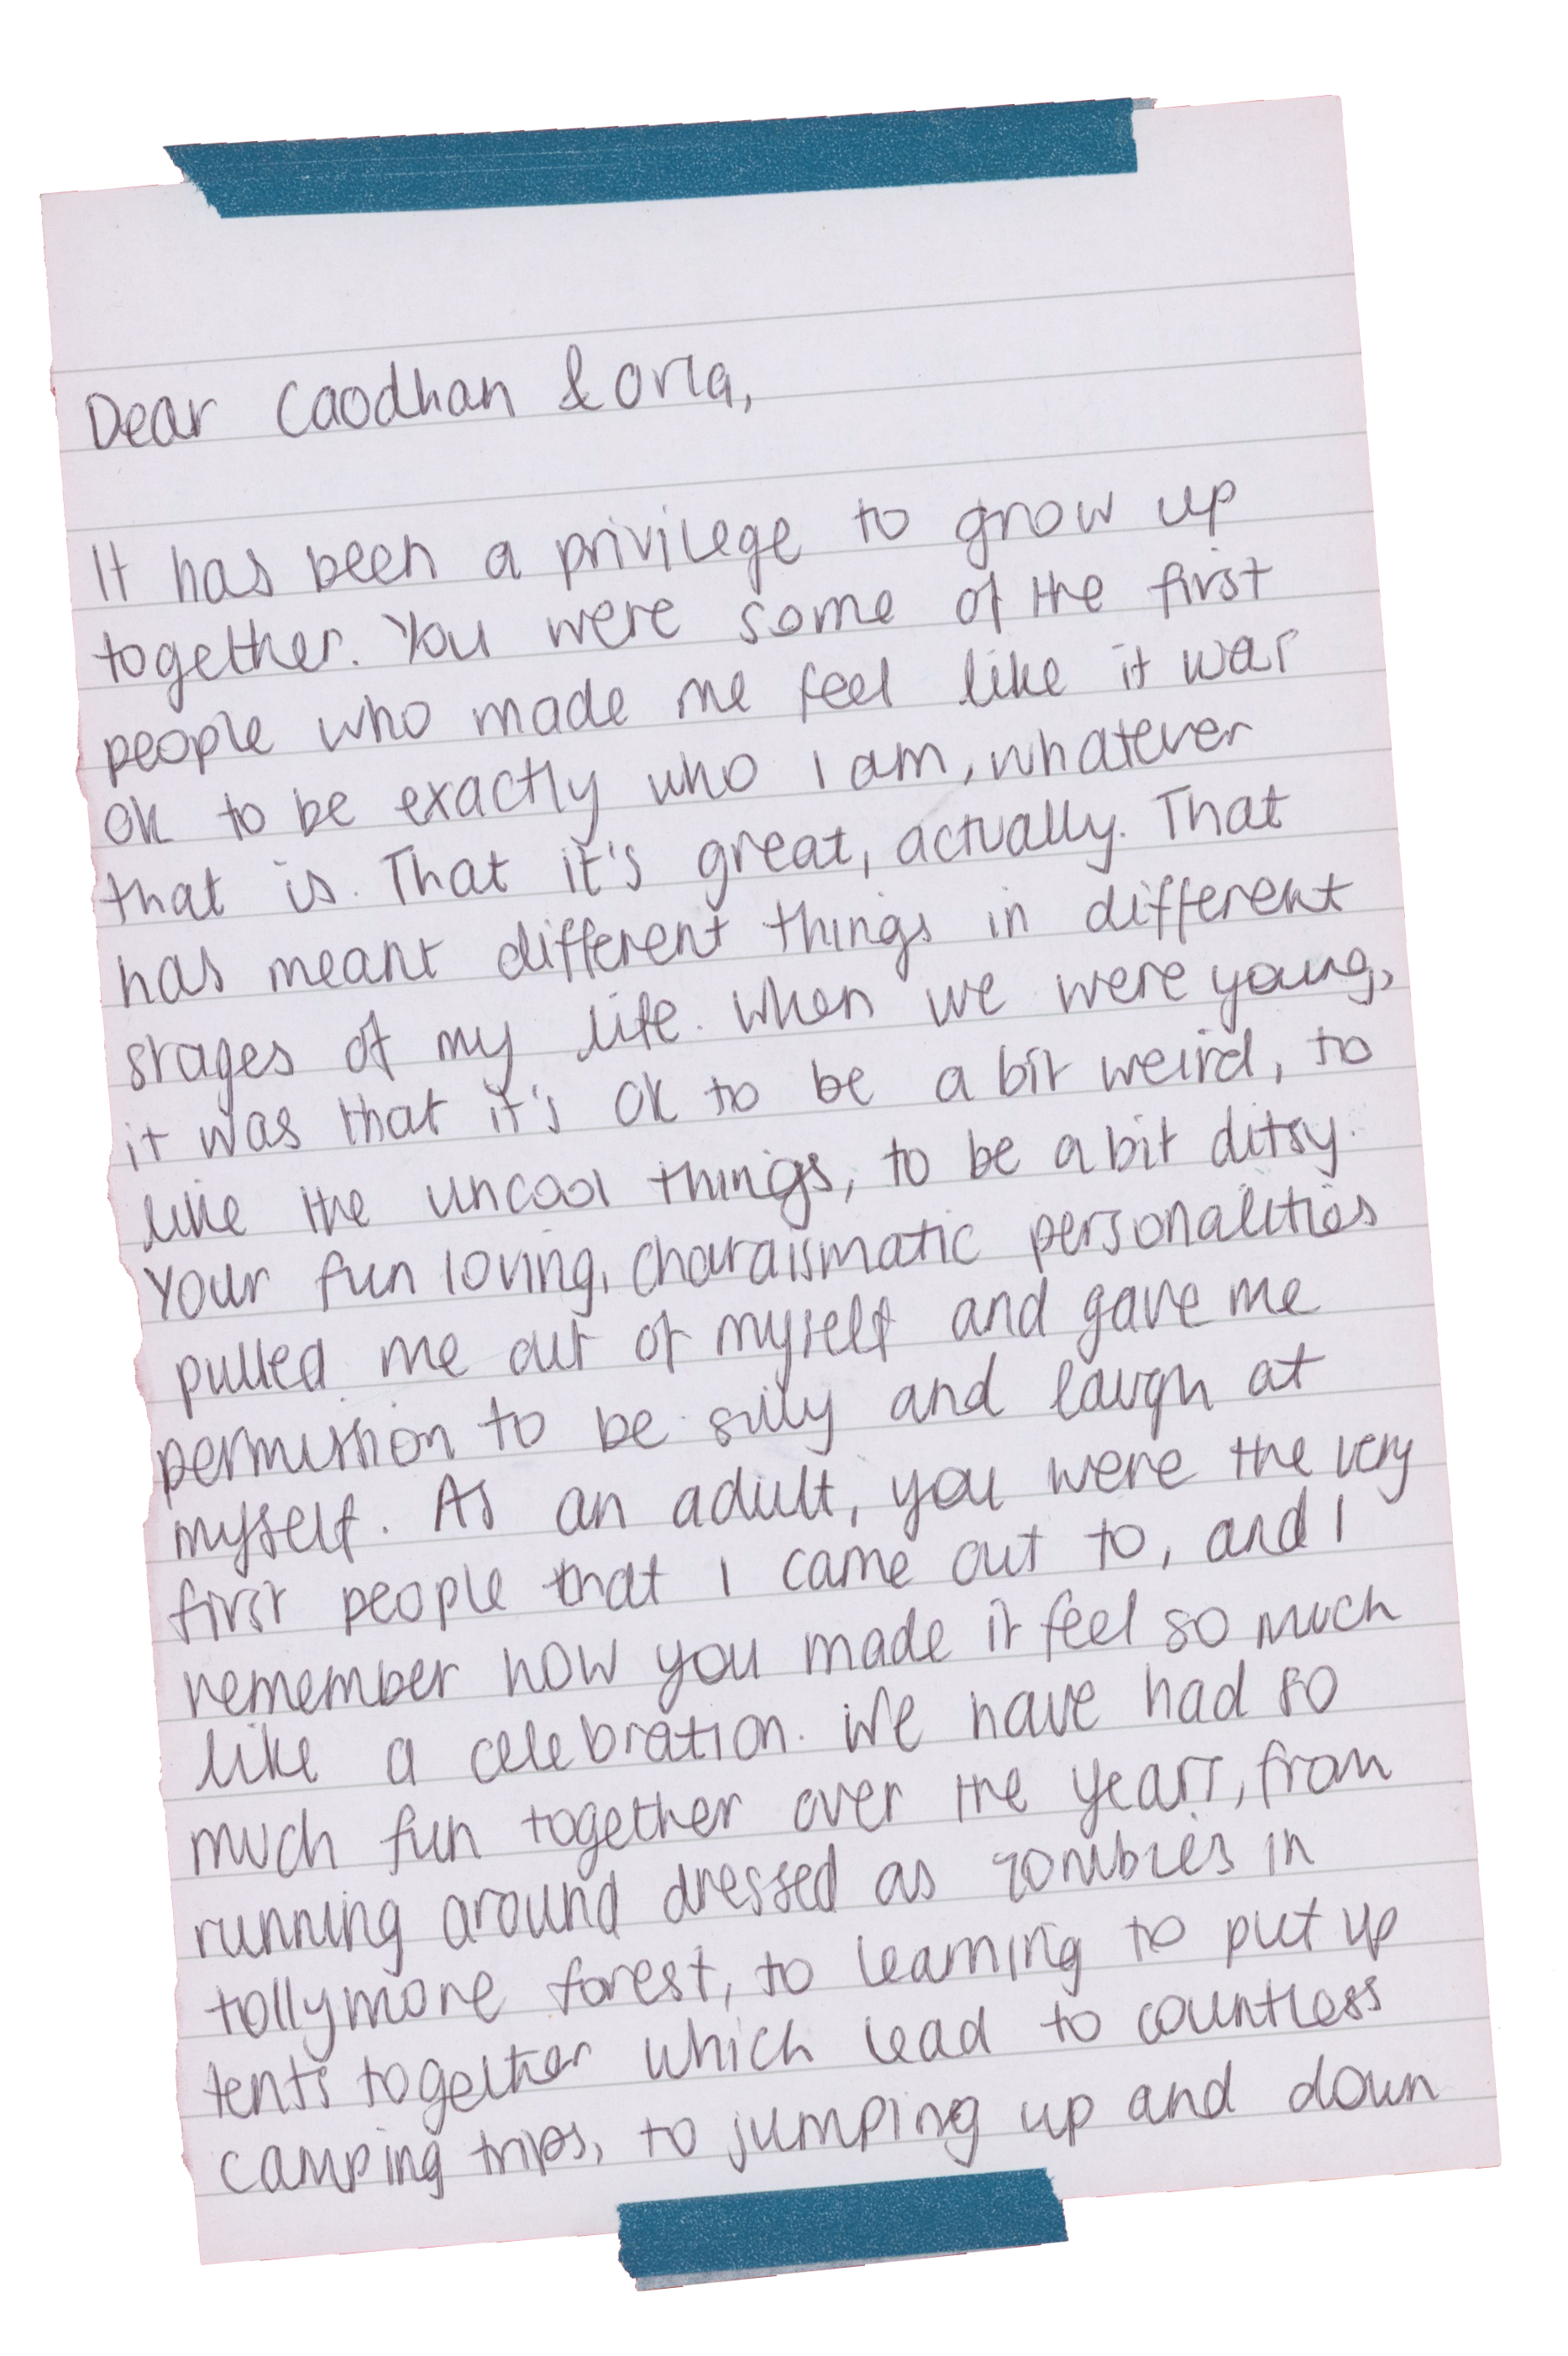 Dear Caodhan & Orla,
It has been a privilege to grow up
together. You were some of the first
people who made me feel like it was
ok to be exactly who I am, whatever
that is. That it's great, actually. That
has meant different things in different
stages of my life. When we were young,
it was that it's ok to be a bit weird, to
like the uncool things, to be a bit ditsy.
Your fun loving, charaismatic personalities
pulled me out of myself and gave me
permission to be silly and laugh at
myself. As an adult, you were the very
first people that I came out to, and I
remember how you made it feel so much
like a celebration. We have had so
much fun together over the years, from
running around dressed as zombies in
tollymore forest, to learning to put up
tents together which lead to countless
camping trips, to jumping up and down